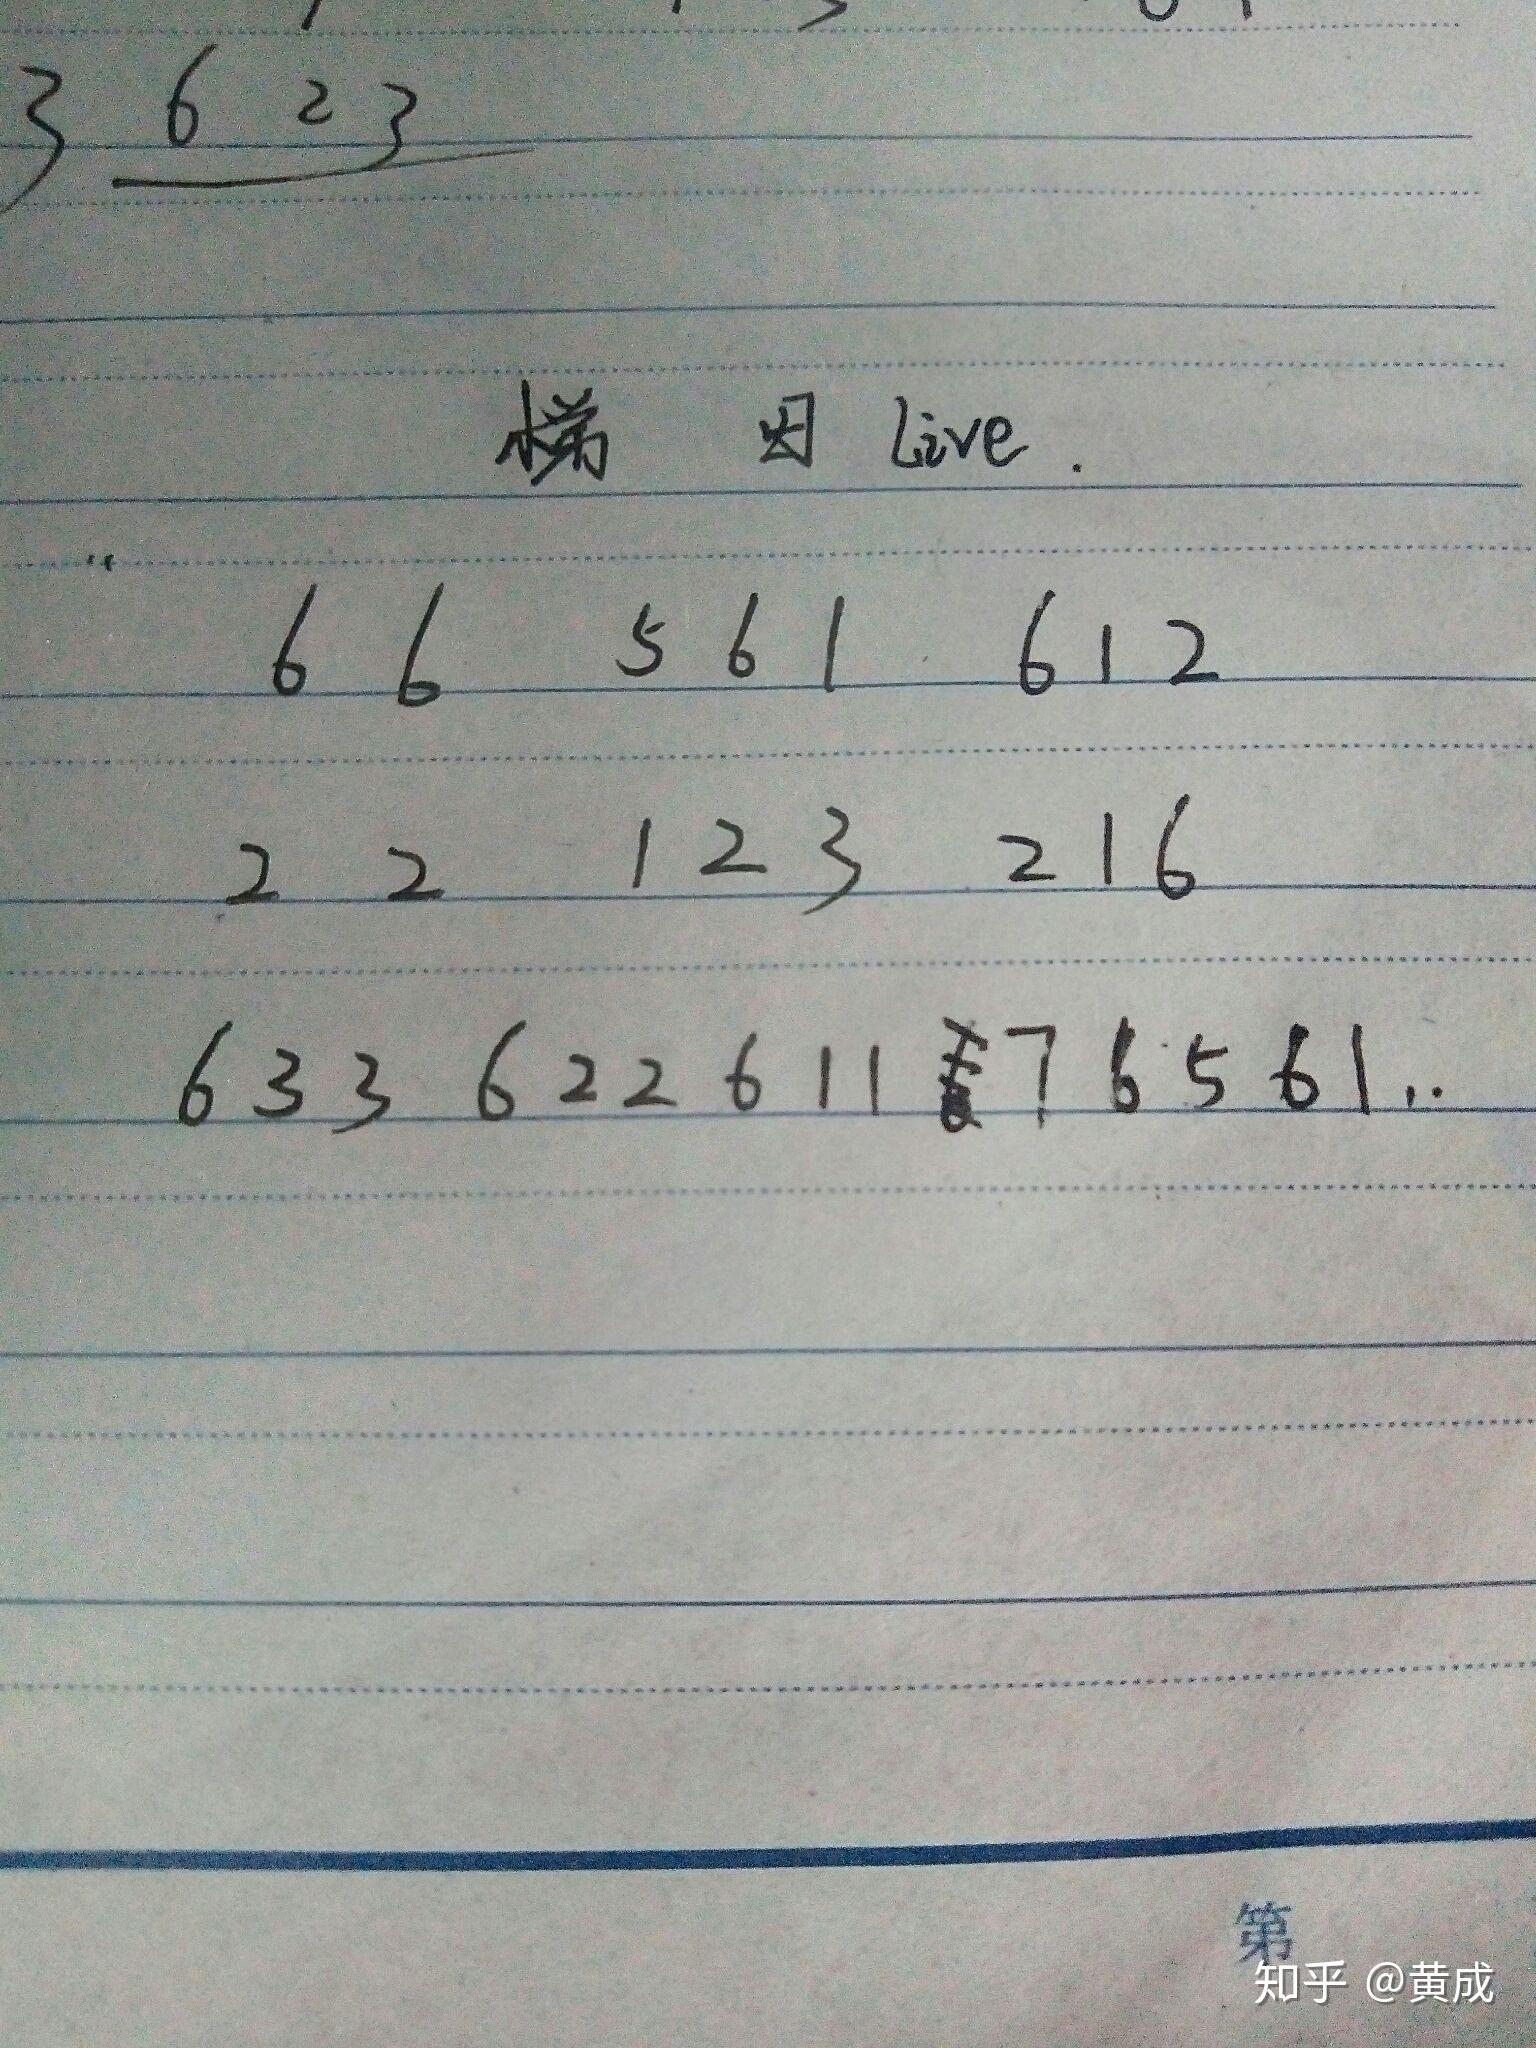 3 6 2 3
梯 因 Live.
6 6 5 6 1 6 1 2
2 2 1 2 3 2 1 6
6 3 3 6 2 2 6 1 1 7 6 5 6 1 ...
第
知乎 @黄成